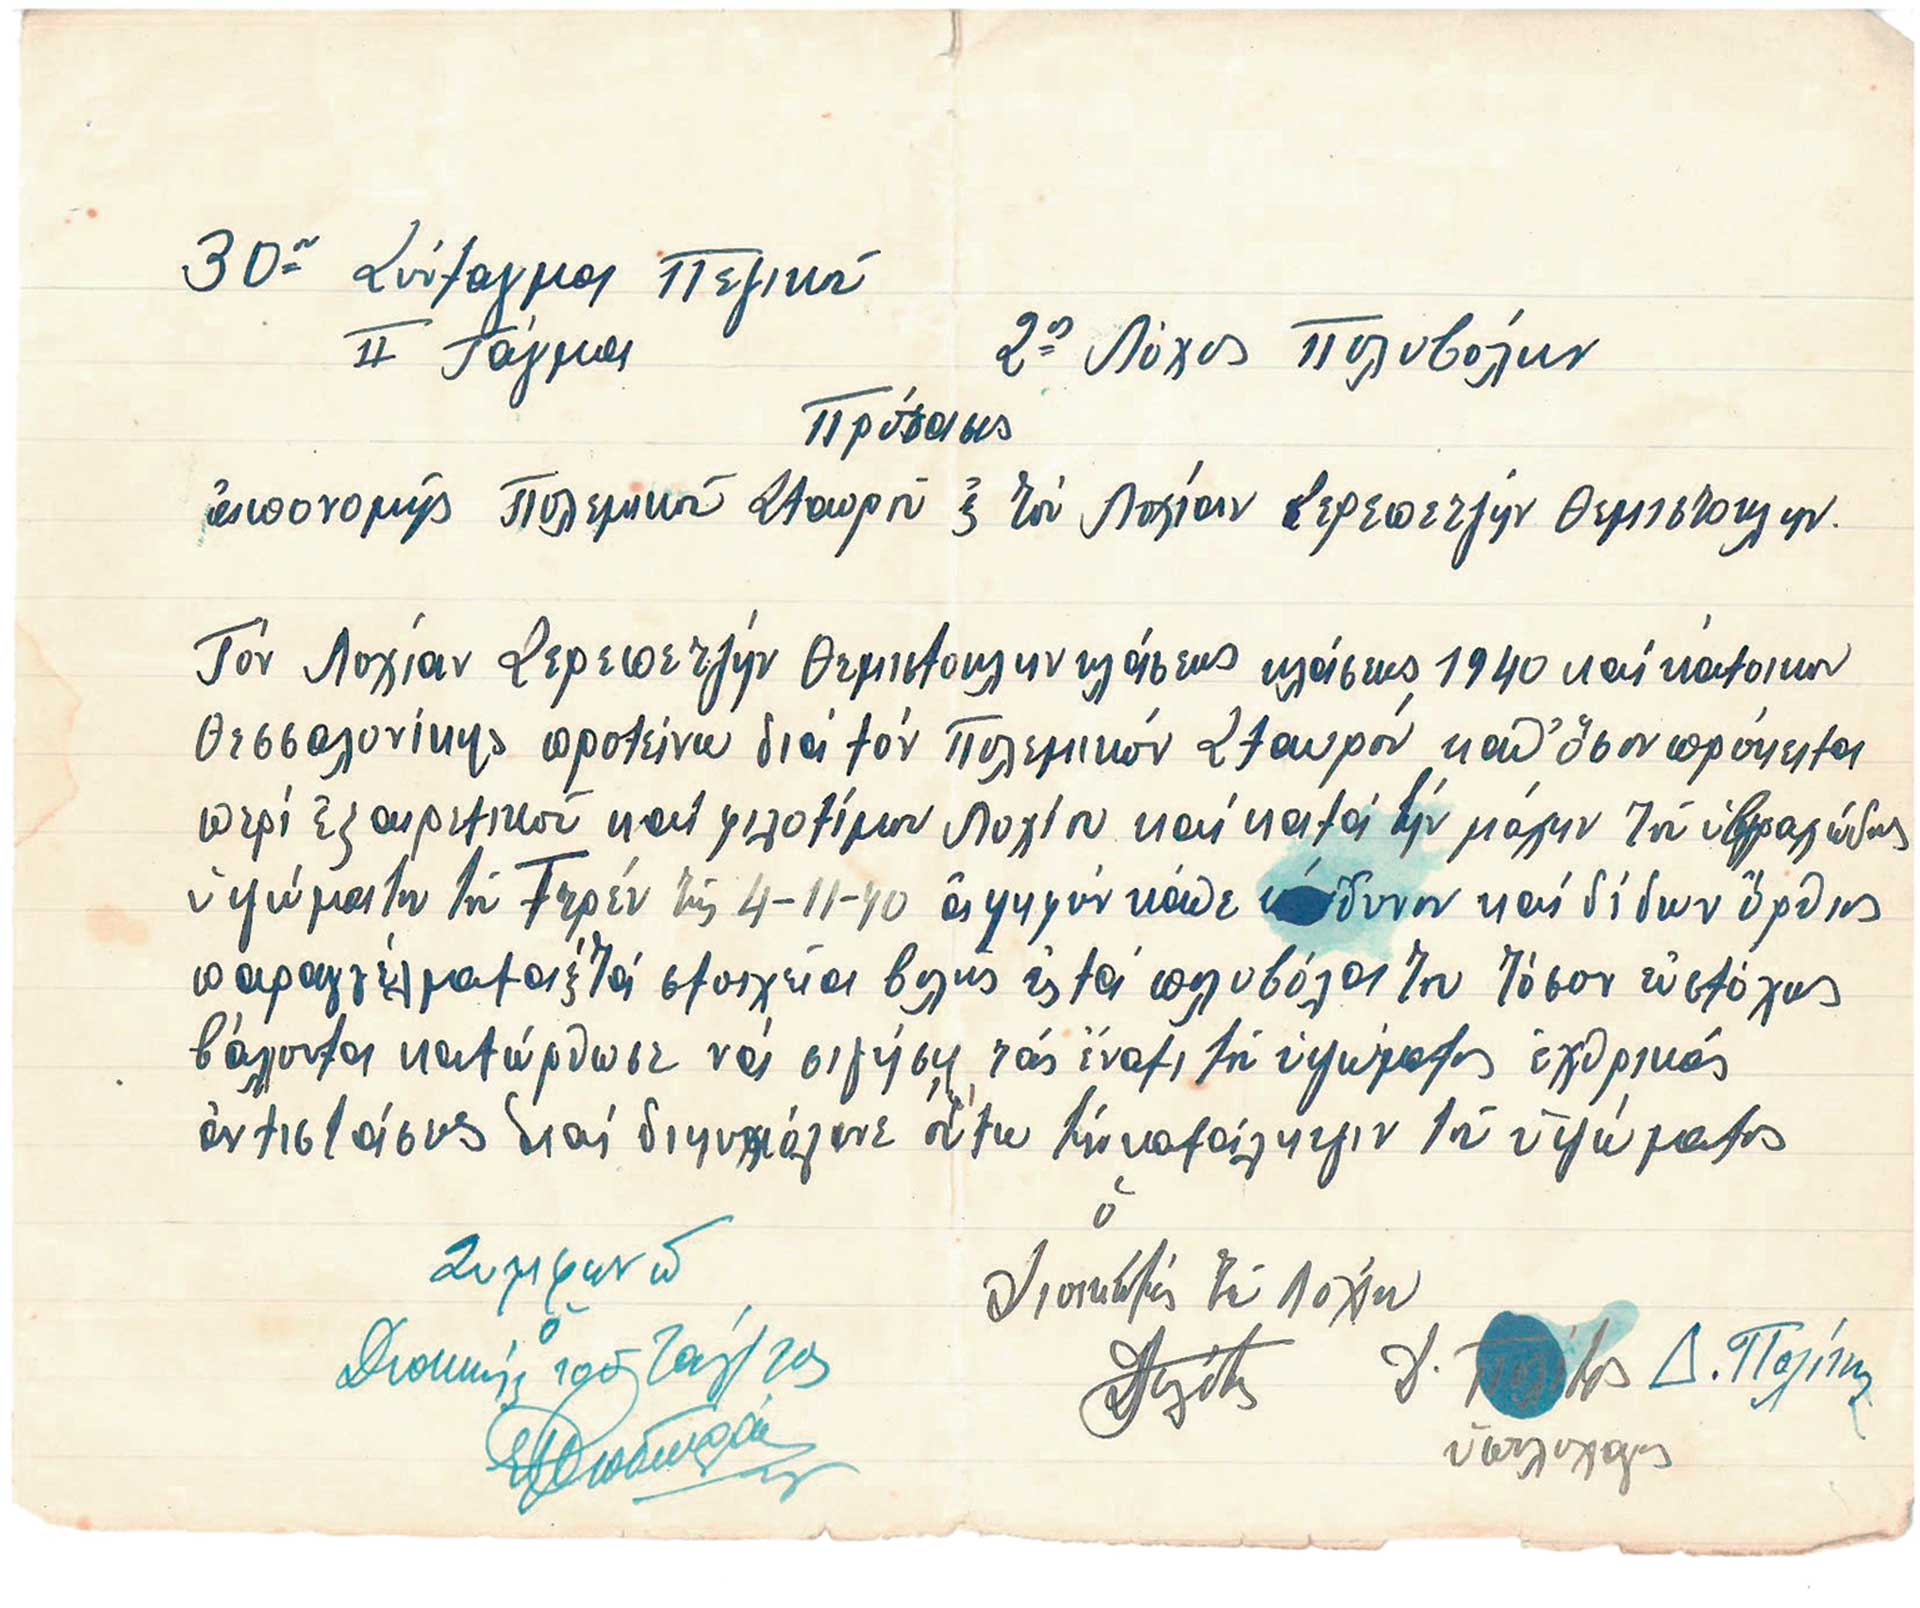 30ον Σύνταγμα Πεζικού
ΙΙ Τάγμα
2ος Λόχος Πολυβόλων
Πρότασις
ἀπονομῆς Πολεμικοῦ Σταυροῦ εἰς τόν Λοχίαν Σερεπετζήν Θεμιστοκλήν.
Τόν Λοχίαν Σερεπετζήν Θεμιστοκλήν κλάσεως κλάσεως 1940 καί κάτοικον
Θεσσαλονίκης προτείνω διά τόν Πολεμικόν Σταυρόν καθ' ὅσον πρόκειται
περί ἐξαιρετικοῦ καί φιλοτίμου Λοχίου καί κατά τήν μάχην τοῦ
ὑψώματος τοῦ τῆς 4-11-40 ἀψηφών κάθε κίνδυνον καί δίδων ὄρθιος
παραγγέλματα εἰς τά στοιχεῖα βολῆς εἰς τά πολυβόλα του τόσον εὐστόχως
βάλοντα κατώρθωσε νά σιγήση τάς ἔναντι τοῦ ὑψώματος ἐχθρικάς
ἀντιστάσεις καί διηυκόλυνε οὕτω τήν κατάληψιν τοῦ ὑψώματος
Συμφωνῶ
ὁ
Διοικητής τοῦ τάγ/τος
ὁ
Διοικητής τοῦ Λόχου
Δ. Πολίτης Δ. Πολίτης
ὑπολοχαγός